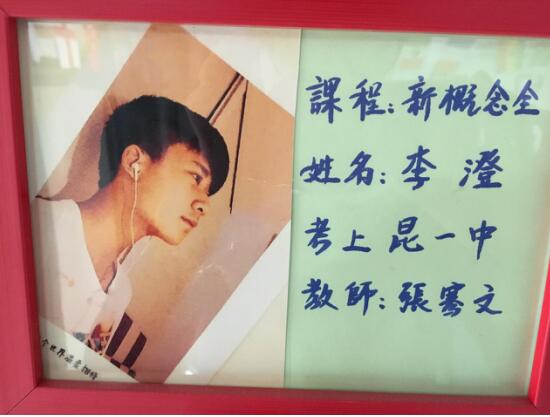 課程:新概念全
姓名:李 澄
考上昆一中
教師:張騫文